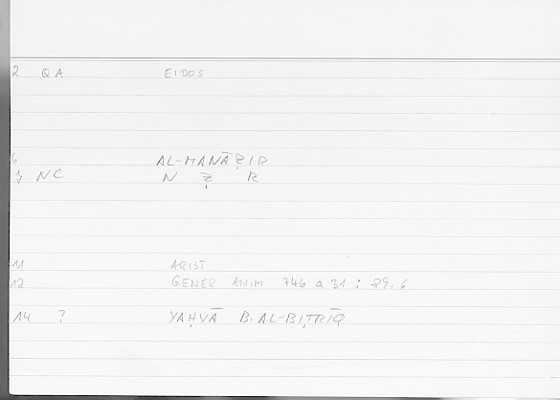 2 QA EIDOS
AL-MANĀẒIR
NC N Ẓ R
11 ARIST
12 GENER ANIM 746 a 31 ; 89,6
14 ? YAḤYĀ B. AL-BIṬRĪQ